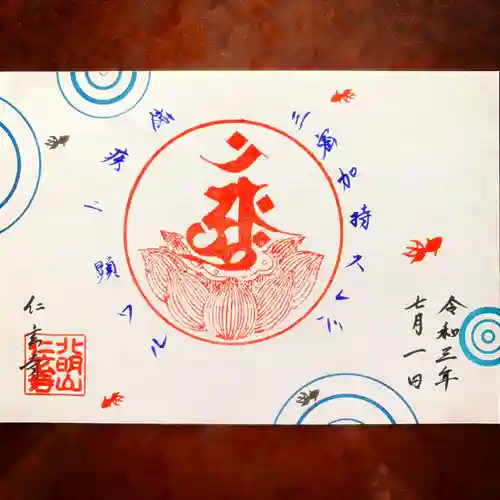 三密加持スレバ
速疾ニ顕ワル
令和三年
七月一日
仁玄寺
北明山
仁玄寺